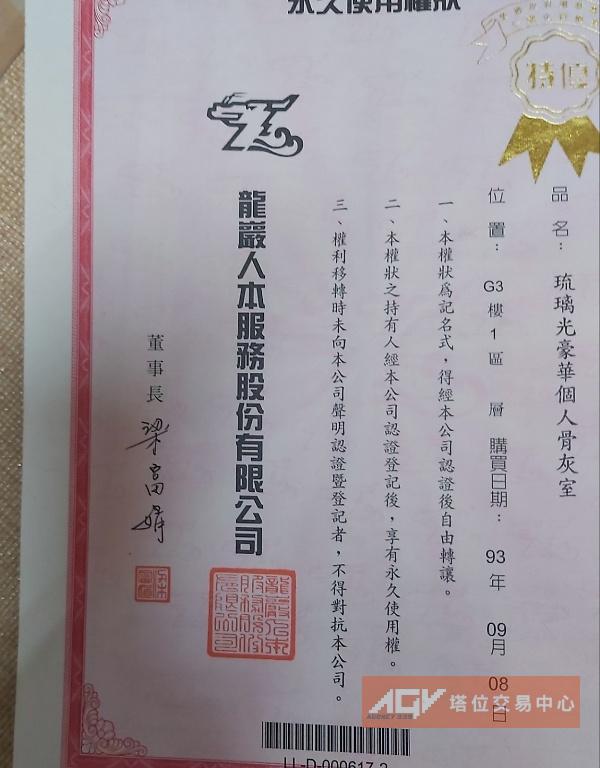 永久使用權狀
特優
品名：琉璃光豪華個人骨灰室
位置：G3樓1區 層 購買日期：93年 09月 08日
一、本權狀為記名式，得經本公司認證後自由轉讓。
二、本權狀之持有人經本公司認證登記後，享有永久使用權。
三、權利移轉時未向本公司聲明認證暨登記者，不得對抗本公司。
龍巖人本服務股份有限公司
董事長
LL-D-000617-2
AGV 塔位交易中心